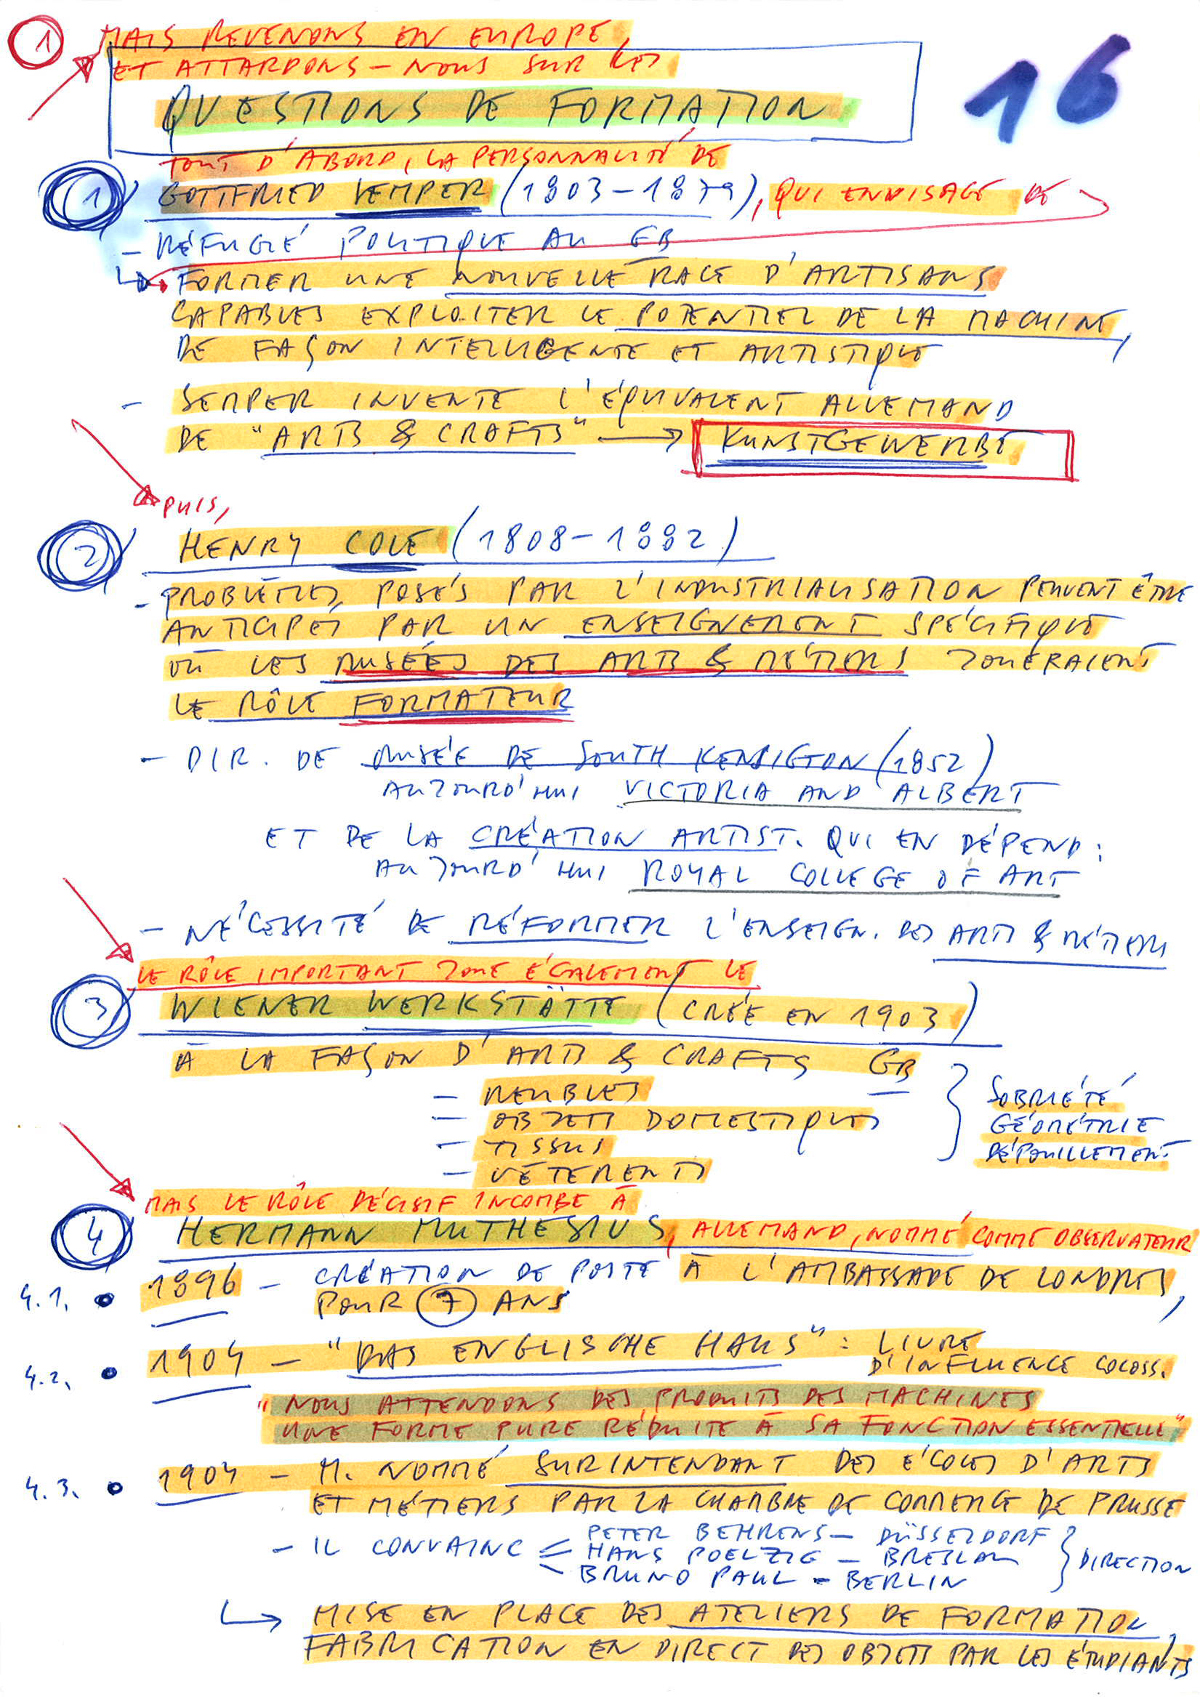 1 MAIS REVENONS EN EUROPE,
ET ATTARDONS-NOUS SUR LES
16
QUESTIONS DE FORMATION
TOUT D'ABORD, LA PERSONNALITÉ DE
1 GOTTFRIED SEMPER (1803-1879), QUI ENVISAGE DE
- RÉFUGIÉ POLITIQUE AU GB
FORMER UNE NOUVELLE RACE D'ARTISANS
CAPABLES EXPLOITER LE POTENTIEL DE LA MACHINE,
DE FAÇON INTELLIGENTE ET ARTISTIQUE
- SEMPER INVENTE L'ÉQUIVALENT ALLEMAND
DE "ARTS & CRAFTS" → KUNSTGEWERBE
PUIS,
2 HENRY COLE (1808-1882)
- PROBLÈMES POSÉS PAR L'INDUSTRIALISATION PEUVENT ÊTRE
ANTICIPÉS PAR UN ENSEIGNEMENT SPÉCIFIQUE
OÙ LES MUSÉES DES ARTS & MÉTIERS JOUERAIENT
LE RÔLE FORMATEUR
- DIR. DE MUSÉE DE SOUTH KENSIGTON (1852)
AUJOURD'HUI VICTORIA AND ALBERT
ET DE LA CRÉATION ARTIST. QUI EN DÉPEND :
AUJOURD'HUI ROYAL COLLEGE OF ART
- NÉCESSITÉ DE RÉFORMER L'ENSEIGN. DES ARTS & MÉTIERS
LE RÔLE IMPORTANT JOUE ÉGALEMENT LE
3 WIENER WERKSTÄTTE (CRÉE EN 1903)
À LA FAÇON D'ARTS & CRAFTS GB
- MEUBLES
- OBJETS DOMESTIQUES
- TISSUS
- VÊTEMENTS
SOBRIÉTÉ
GÉOMÉTRIE
DÉPOUILLEMENT
MAIS LE RÔLE DÉCISIF INCOMBE À
4 HERMANN MUTHESIUS, ALLEMAND, NOMMÉ COMME OBSERVATEUR
4.1. • 1896 - CRÉATION DE POSTE À L'AMBASSADE DE LONDRES,
POUR 7 ANS
4.2. • 1904 - "DAS ENGLISCHE HAUS" : LIVRE
D'INFLUENCE COLOSS.
"NOUS ATTENDONS DES PRODUITS DES MACHINES
UNE FORME PURE RÉDUITE À SA FONCTION ESSENTIELLE"
4.3. • 1904 - M. NOMMÉ SURINTENDANT DES ÉCOLES D'ARTS
ET MÉTIERS PAR LA CHAMBRE DE COMMERCE DE PRUSSE
- IL CONVAINC
PETER BEHRENS - DÜSSELDORF
HANS POELZIG - BRESLAU
BRUNO PAUL - BERLIN
DIRECTION
→ MISE EN PLACE DES ATELIERS DE FORMATION,
FABRICATION EN DIRECT DES OBJETS PAR LES ÉTUDIANTS